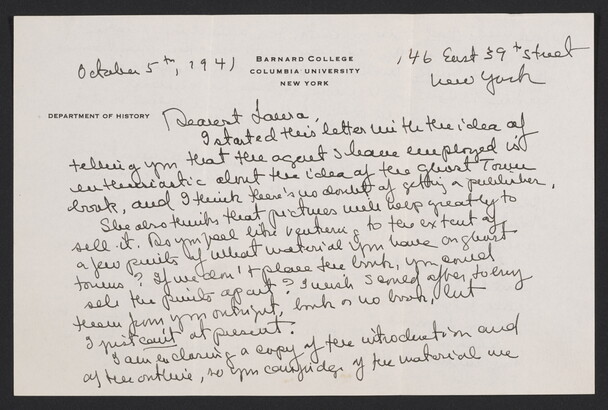 October 5th, 1941
BARNARD COLLEGE
COLUMBIA UNIVERSITY
NEW YORK
146 East 39th Street
New York
DEPARTMENT OF HISTORY
Dearest Laura,
I started this letter with the idea of
telling you that the agent I have employed is
enthusiastic about the idea of the Ghost Town
book, and I think there's no doubt of getting a publisher.
She also thinks that pictures will help greatly to
sell it. Do you feel like venturing to the extent of
a few prints of what material you have on ghost
towns? If we don't place the book, you could
sell the prints again? I wish I could offer to buy
them from you outright, book or no book, but
I just can't at present.
I am enclosing a copy of the introduction and
of the outline, so you can judge of the material we